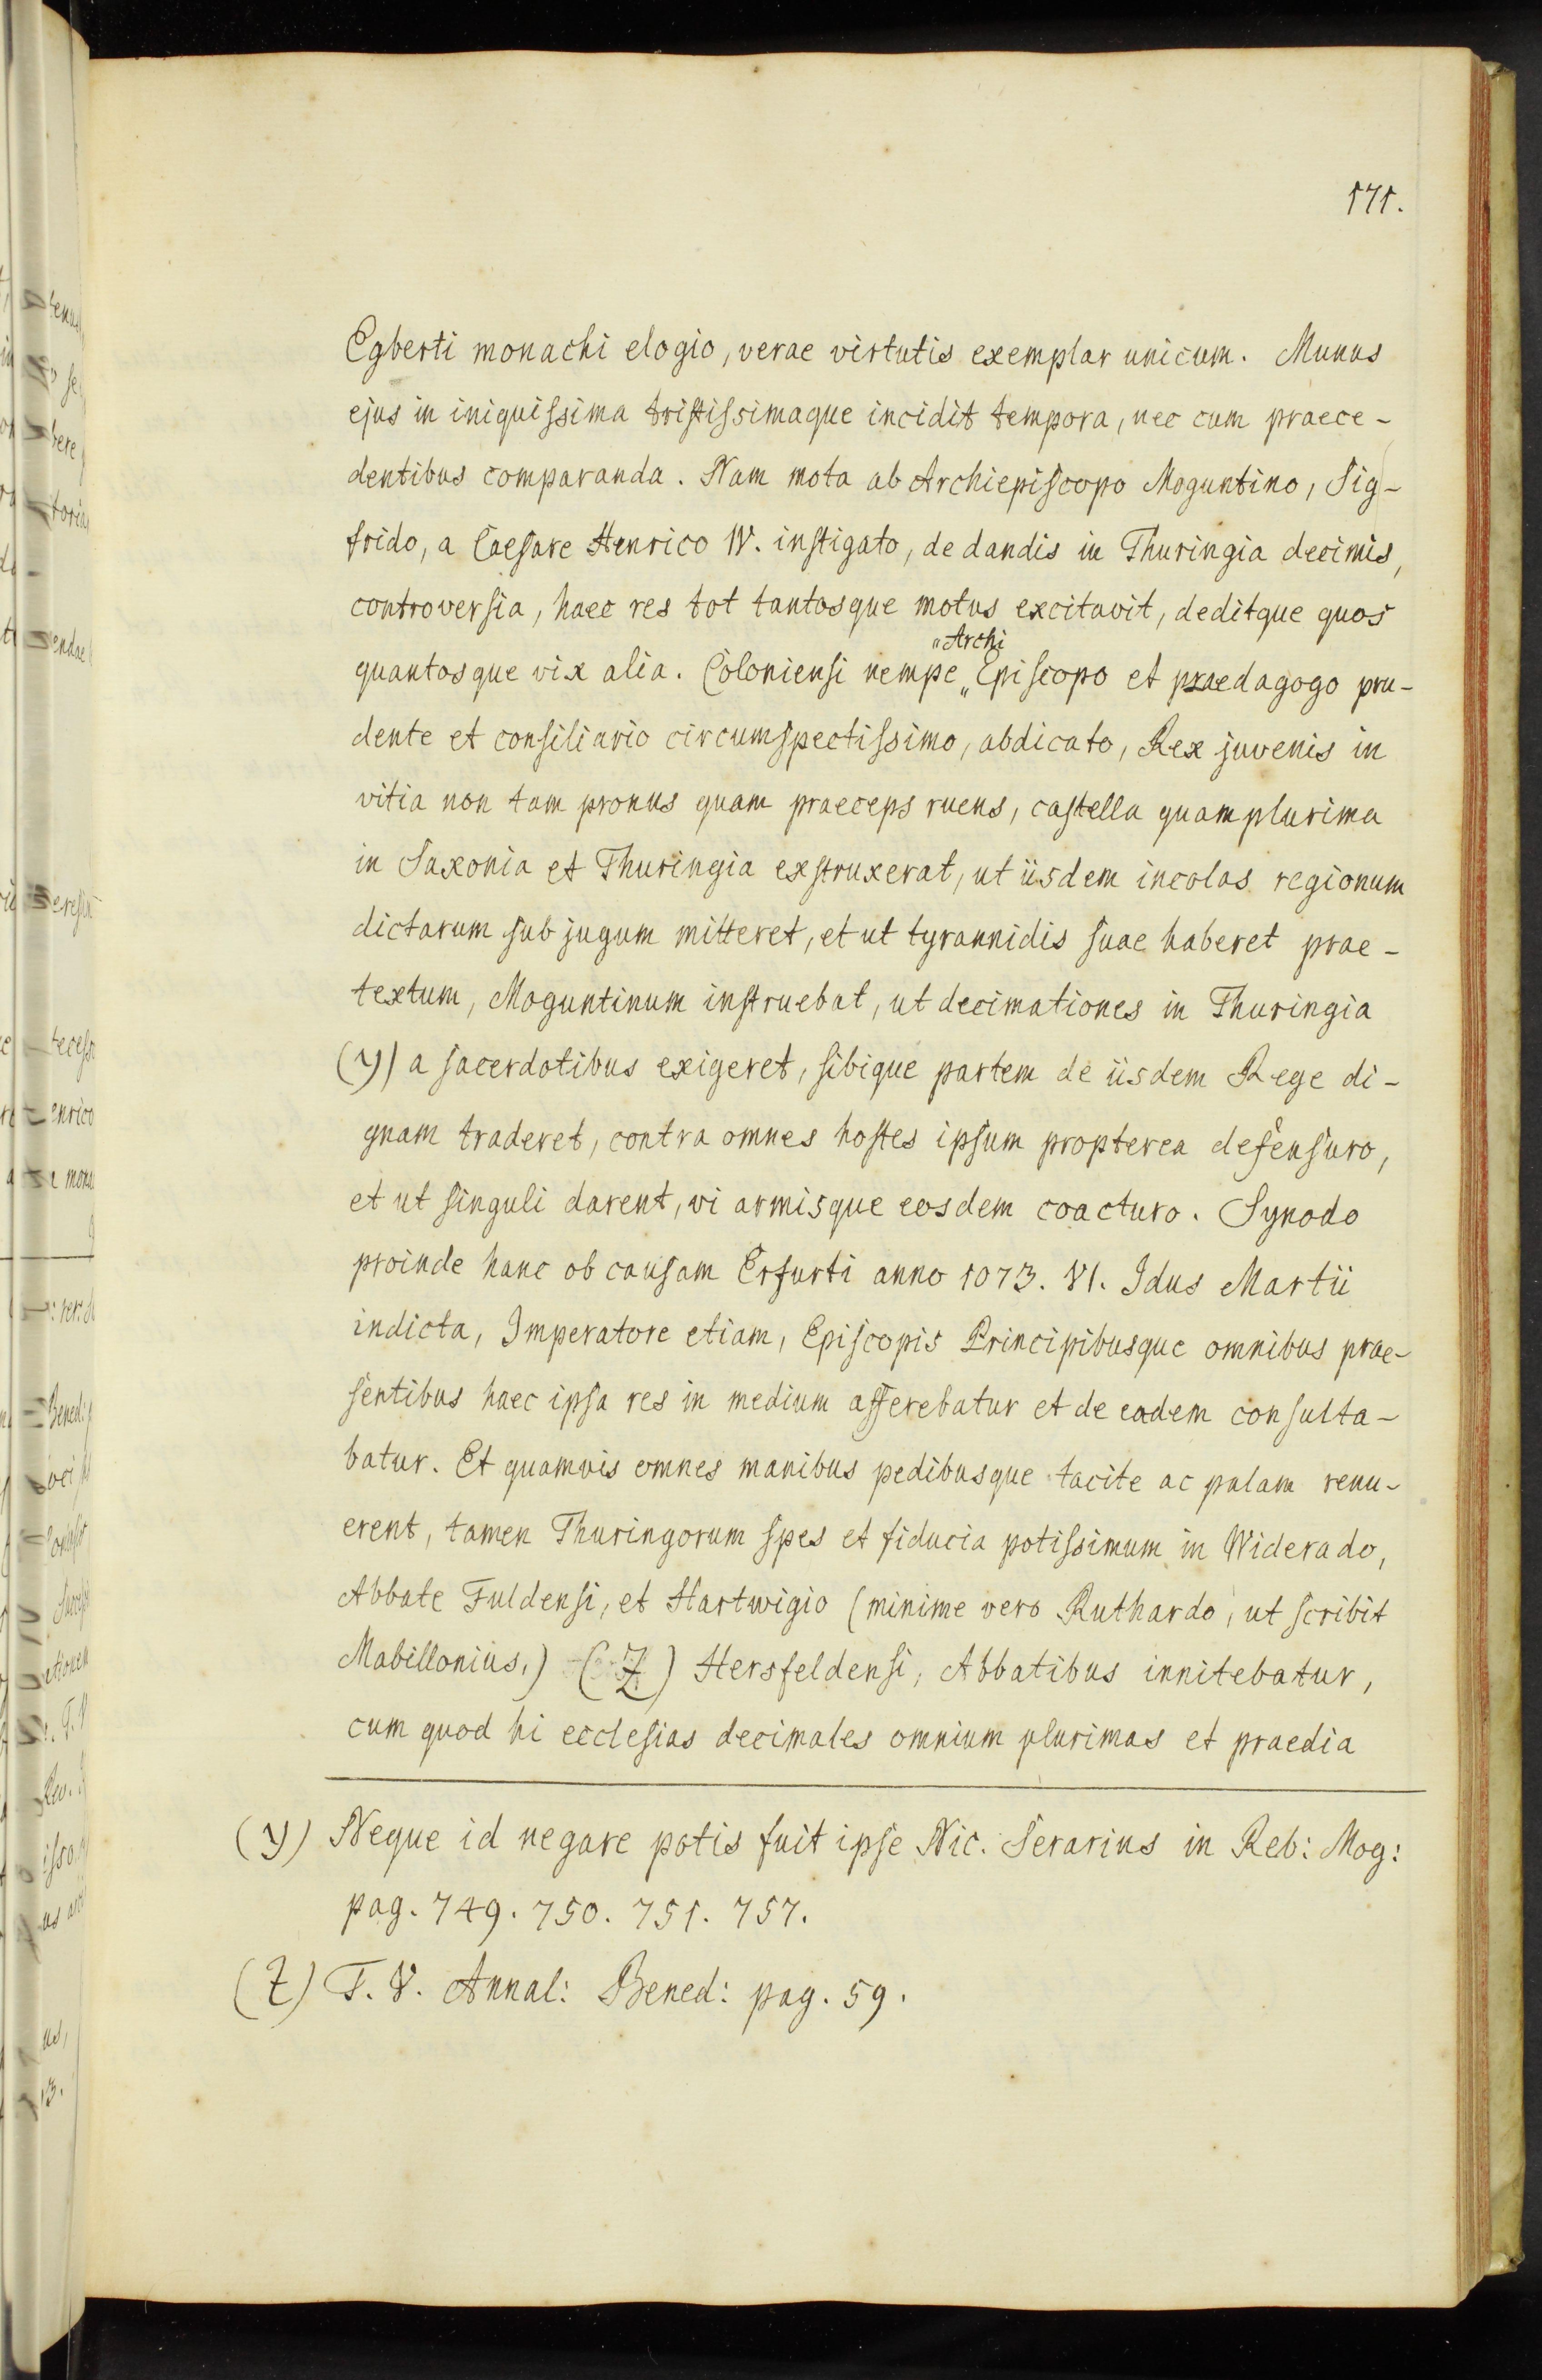 171.
Egberti monachi elogio, verae virtutis exemplar unicum. Munus
ejus in iniquissima tristissimaque incidit tempora, nec cum praece-
dentibus comparanda. Nam mota ab Archiepiscopo Moguntino, Sig-
frido, a Caesare Henrico IV. instigato, de dandis in Thuringia decimis,
controversia, haec res tot tantosque motus excitavit, deditque quos
quantosque vix alia. Coloniensi nempe "Archi„Episcopo et praedagogo pru-
dente et consiliario circumspectissimo, abdicato, Rex juvenis in
vitia non tam pronus quam praeceps ruens, castella quamplurima
in Saxonia et Thuringia exstruxerat, ut iisdem incolas regionum
dictarum sub jugum mitteret, et ut tyrannidis suae haberet prae-
textum, Moguntinum instruebat, ut decimationes in Thuringia
(y) a sacerdotibus exigeret, sibique partem de iisdem Rege di-
gnam traderet, contra omnes hostes ipsum propterea defensuro,
et ut singuli darent, vi armisque eosdem coacturo. Synodo
proinde hanc ob causam Erfurti anno 1073. VI. Idus Martii
indicta, Imperatore etiam, Episcopis Principibusque omnibus prae-
sentibus haec ipsa res in medium afferebatur et de eadem consulta-
batur. Et quamvis omnes manibus pedibusque tacite ac palam renu-
erent, tamen Thuringorum spes et fiducia potissimum in Widerado,
Abbate Fuldensi, et Hartwigio (minime vero Ruthardo, ut scribit
Mabillonius,) (Z) Hersfeldensi, Abbatibus innitebatur,
cum quod hi ecclesias decimales omnium plurimas et praedia
(y) Neque id negare potis fuit ipse Nic. Serarius in Reb: Mog:
pag. 749. 750. 751. 757.
(Z) T. V. Annal: Bened: pag. 59.